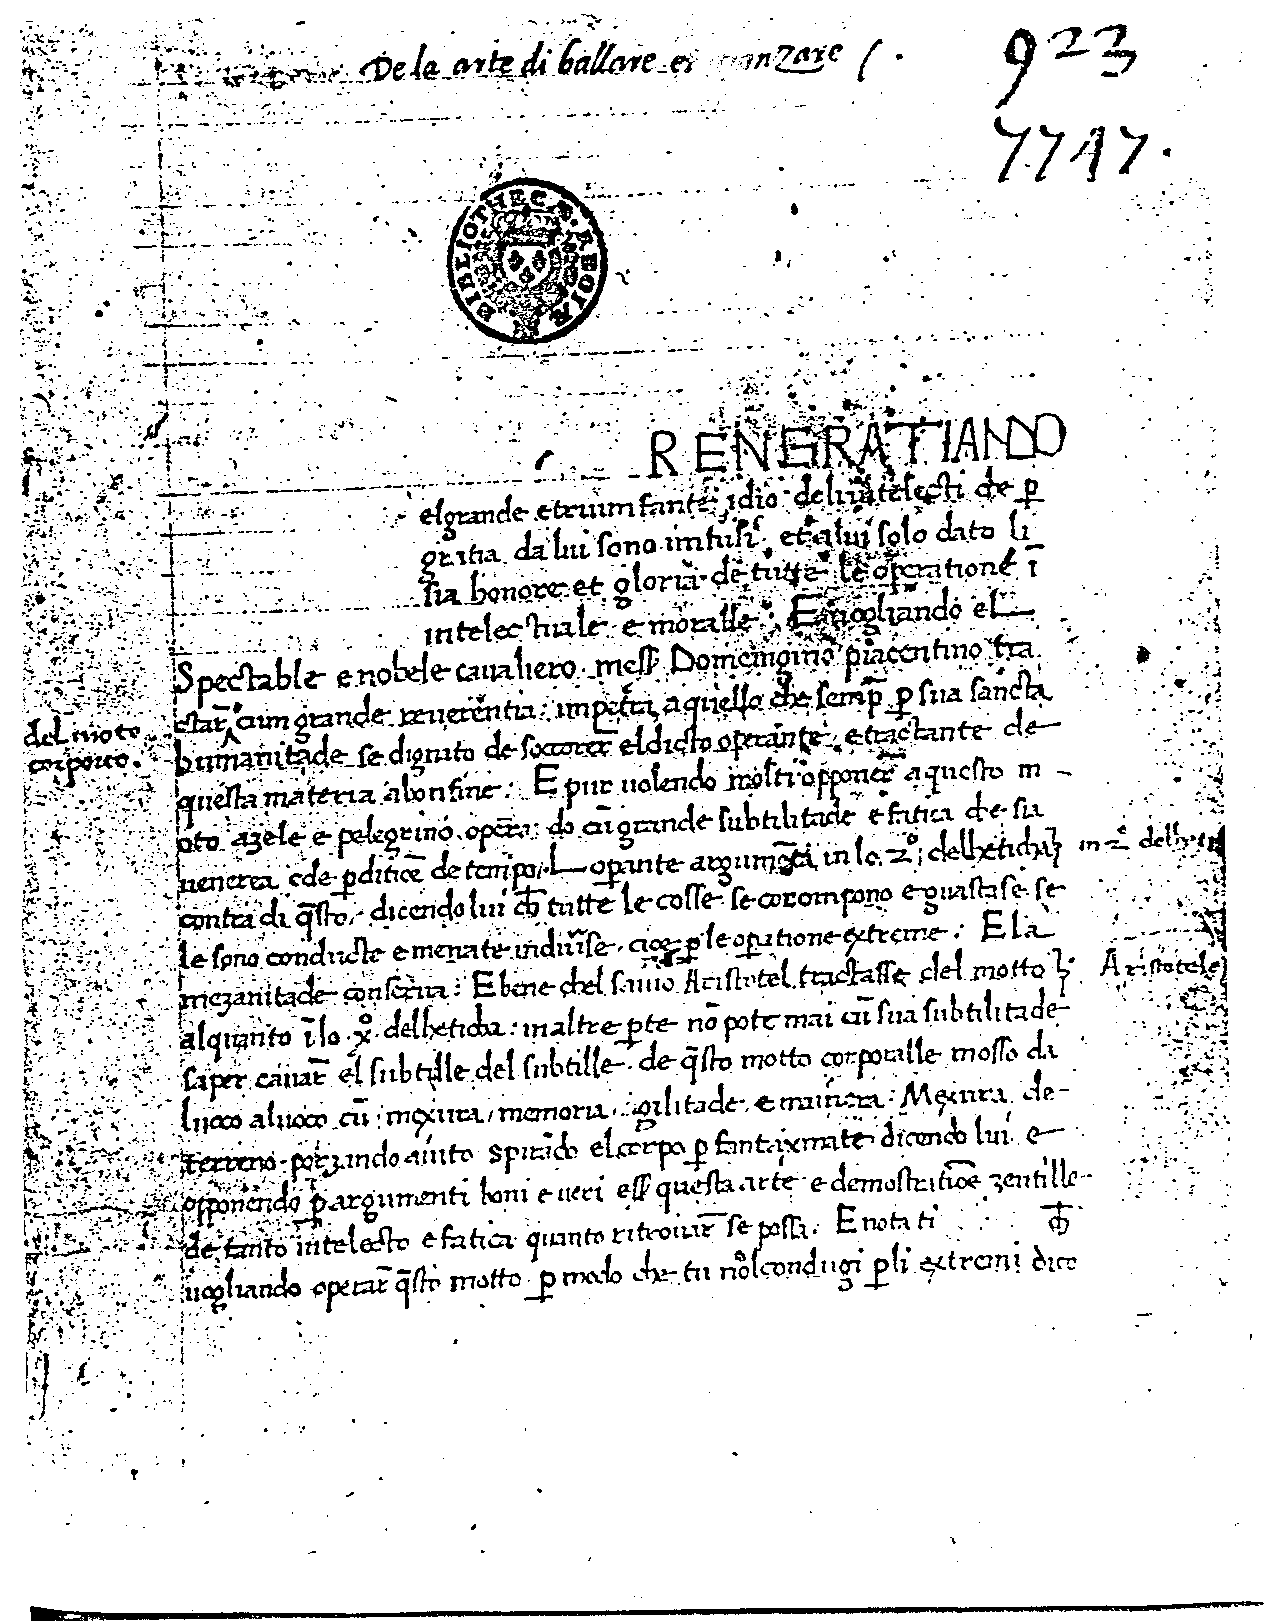 De la arte di ballare et danzare
923
7747.
BIBLIOTHECÆ REGIÆ
RENGRATIANDO
el grande e triumfante idio deli intelecti che p̲
gratia da lui sono infusi. et a lui solo dato li
sia honore et gloria de tutte le operatione ī
intelectuale e moralle: E vogliando el
Spectable e nobele cavaliero mess. Domengino piacentino tra
ctar̄ cum grande reverentia: impetra a quello che semp̄ p̲ sua sancta
del moto
corporeo.
humanitade se dignito de soccorer̄ el dicto operante e tractante de
questa materia a bon fine: E pur volendo molti opponer̄ a questo m
oto azele e pelegrino opera: do cū grande subtilitade e fatica che sia
venerea e de p̲ditiōe de tempo. L operante argumēta in lo 2°: delheticha
in 2° delhetica
contra di q̄sto. dicendo lui ch̄ tutte le cosse se corompono e guastase se
le sono conducte e menate indivīse. cioe p̲ le op̲atione extreme: E la
mezanitade conserva: E bene chel savio Aristotel tractasse del motto
Aristotele
alquanto ī lo x° delheticha: in altre p̲te nō pote mai cū sua subtilitade
saper cavar̄ el subtille del subtille de q̄sto motto corporalle mosso da
luoco a luoco cū mexura, memoria, agilitade e mainera: Mexura de
terreno porzando aiuto spirādo el corpo p̲ fantaxmate dicendo lui e
opponendo p̲ argumenti boni e veri ess̄ questa arte e demostratiōe zentille
de tanto īntelecto e fatica quanto ritrovar̄ se possa. E nota ti ch̄
vogliando operar̄ q̄sto motto p̲ modo che tu nōl condugi p̲ li extremi dico